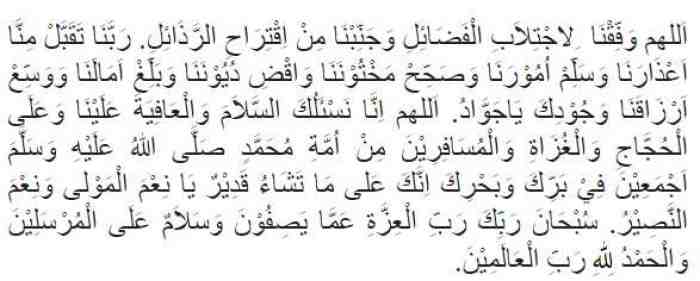 اَللهم وَفِّقْنَا ِلاجْتِلاَبِ الْفَضَائِلِ وَجَنِّبْنَا مِنْ اِقْتِرَاحِ الرَّذَائِلِ. رَبَّنَا تَقَبَّلْ مِنَّا
اَعْذَارَنَا وَسَلِّمْ اُمُوْرَنَا وَصَحِّحْ مَخْتُوْنَنَا وَاقْضِ دُيُوْنَنَا وَبَلِّغْ اَمَالَنَا وَوَسِّعْ
اَرْزَاقَنَا وَجُوْدِكَ يَاجَوَّادُ. اَللهم اِنَّا نَسْئَلُكَ السَّلاَمَ وَالْعَافِيَةَ عَلَيْنَا وَعَلَى
الْحُجَّاجِ وَالْغُزَاةِ وَالْمُسَافِرِيْنَ مِنْ اُمَّةِ مُحَمَّدٍ صَلَّى اللهُ عَلَيْهِ وَسَلَّمَ
اَجْمَعِيْنَ فِيْ بَرِّكَ وَبَحْرِكَ اِنَّكَ عَلى مَا تَشَاءُ قَدِيْرٌ يَا نِعْمَ الْمَوْلى وَنِعْمَ
النَّصِيْرُ. سُبْحَانَ رَبِّكَ رَبِّ الْعِزَّةِ عَمَّا يَصِفُوْنَ وَسَلاَمٌ عَلَى الْمُرْسَلِيْنَ
وَالْحَمْدُ لِلّهِ رَبِّ الْعَالَمِيْنَ.